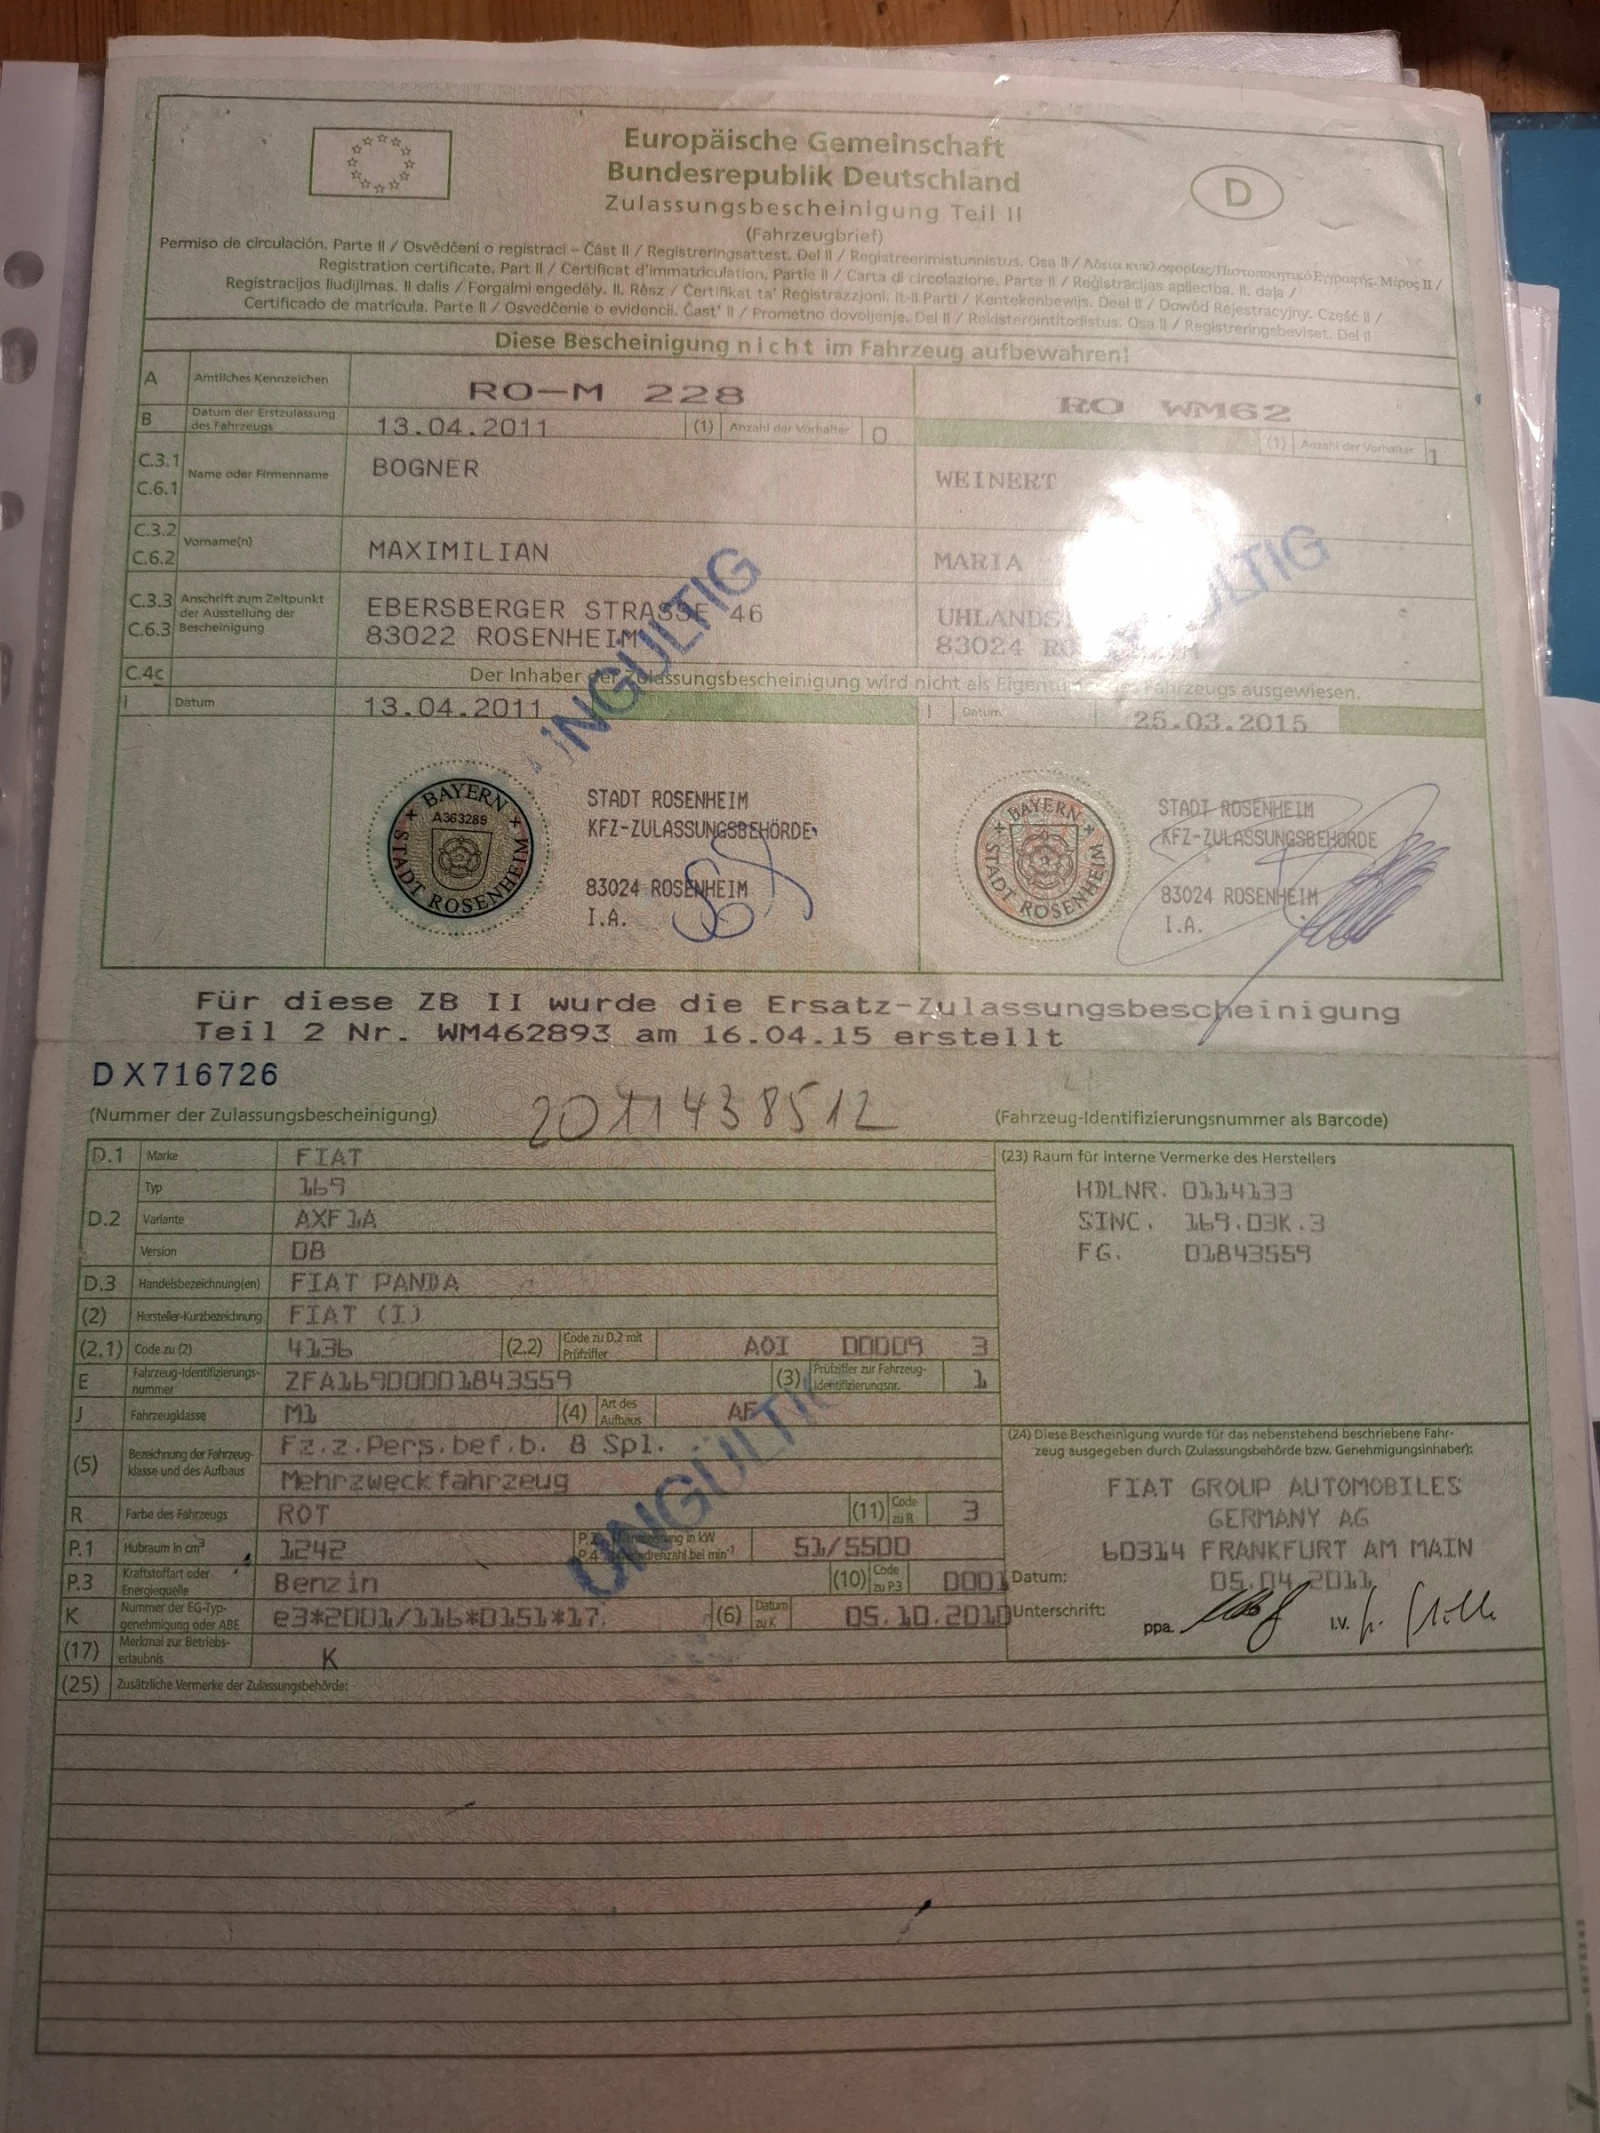 Europäische Gemeinschaft
Bundesrepublik Deutschland
Zulassungsbescheinigung Teil II
(Fahrzeugbrief)
D
Permiso de circulación. Parte II / Osvědčení o registraci – Část II / Registreringsattest. Del II / Registreerimistunnistus. Osa II / Άδεια κυκλοφορίας/Πιστοποιητικό Εγγραφής. Μέρος II /
Registration certificate. Part II / Certificat d'immatriculation. Partie II / Carta di circolazione. Parte II / Reģistrācijas apliecība. II. daļa /
Registracijos liudijimas. II dalis / Forgalmi engedély. II. Rész / Ċertifikat ta' Reġistrazzjoni. It-II Parti / Kentekenbewijs. Deel II / Dowód Rejestracyjny. Część II /
Certificado de matrícula. Parte II / Osvedčenie o evidencii. Časť II / Prometno dovoljenje. Del II / Rekisteröintitodistus. Osa II / Registreringsbeviset. Del II
Diese Bescheinigung nicht im Fahrzeug aufbewahren!
A Amtliches Kennzeichen RO-M 228 RO WM62
B Datum der Erstzulassung des Fahrzeugs 13.04.2011 (1) Anzahl der Vorhalter 0 (1) Anzahl der Vorhalter 1
C.3.1 C.6.1 Name oder Firmenname BOGNER WEINERT
C.3.2 C.6.2 Vorname(n) MAXIMILIAN MARIA
C.3.3 Anschrift zum Zeitpunkt der Ausstellung der EBERSBERGER STRASSE 46
C.6.3 Bescheinigung 83022 ROSENHEIM 83024
UNGÜLTIG
C.4c Der Inhaber der Zulassungsbescheinigung wird nicht als Eigentümer des Fahrzeugs ausgewiesen.
I Datum 13.04.2011 I Datum 25.03.2015
BAYERN
A363289
STADT ROSENHEIM
STADT ROSENHEIM
KFZ-ZULASSUNGSBEHÖRDE
83024 ROSENHEIM
I.A.
BAYERN
STADT ROSENHEIM
STADT ROSENHEIM
KFZ-ZULASSUNGSBEHÖRDE
83024 ROSENHEIM
I.A.
Für diese ZB II wurde die Ersatz-Zulassungsbescheinigung
Teil 2 Nr. WM462893 am 16.04.15 erstellt
DX716726
(Nummer der Zulassungsbescheinigung)
2011438512
(Fahrzeug-Identifizierungsnummer als Barcode)
D.1 Marke FIAT
D.2 Typ 169
Variante AXF1A
Version 08
D.3 Handelsbezeichnung(en) FIAT PANDA
(2) Hersteller-Kurzbezeichnung FIAT (I)
(2.1) Code zu (2) 4136 (2.2) Code zu D.2 mit Prüfziffer AOI 00009 3
E Fahrzeug-Identifizierungsnummer ZFA16900001843559 (3) Prüfziffer zur Fahrzeug-Identifizierungsnr. 1
J Fahrzeugklasse M1 (4) Art des Aufbaus AF
(5) Bezeichnung der Fahrzeugklasse und des Aufbaus Fz.z.Pers.bef.b. 8 Spl.
Mehrzweckfahrzeug
R Farbe des Fahrzeugs ROT (11) Code zu R 3
P.1 Hubraum in cm³ 1242 P.4 51/5500
P.3 Kraftstoffart oder Energiequelle Benzin (10) Code zu P.3 0001
K Nummer der EG-Typgenehmigung oder ABE e3*2001/116*0151*17 (6) Datum zu K 05.10.2010
(17) Merkmal zur Betriebserlaubnis K
UNGÜLTIG
(23) Raum für interne Vermerke des Herstellers
HDLNR. 0114133
SINC. 169.03K.3
FG. 01843559
(24) Diese Bescheinigung wurde für das nebenstehend beschriebene Fahrzeug ausgegeben durch (Zulassungsbehörde bzw. Genehmigungsinhaber):
FIAT GROUP AUTOMOBILES
GERMANY AG
60314 FRANKFURT AM MAIN
Datum: 05.04.2011
Unterschrift: ppa. i.V.
(25) Zusätzliche Vermerke der Zulassungsbehörde: